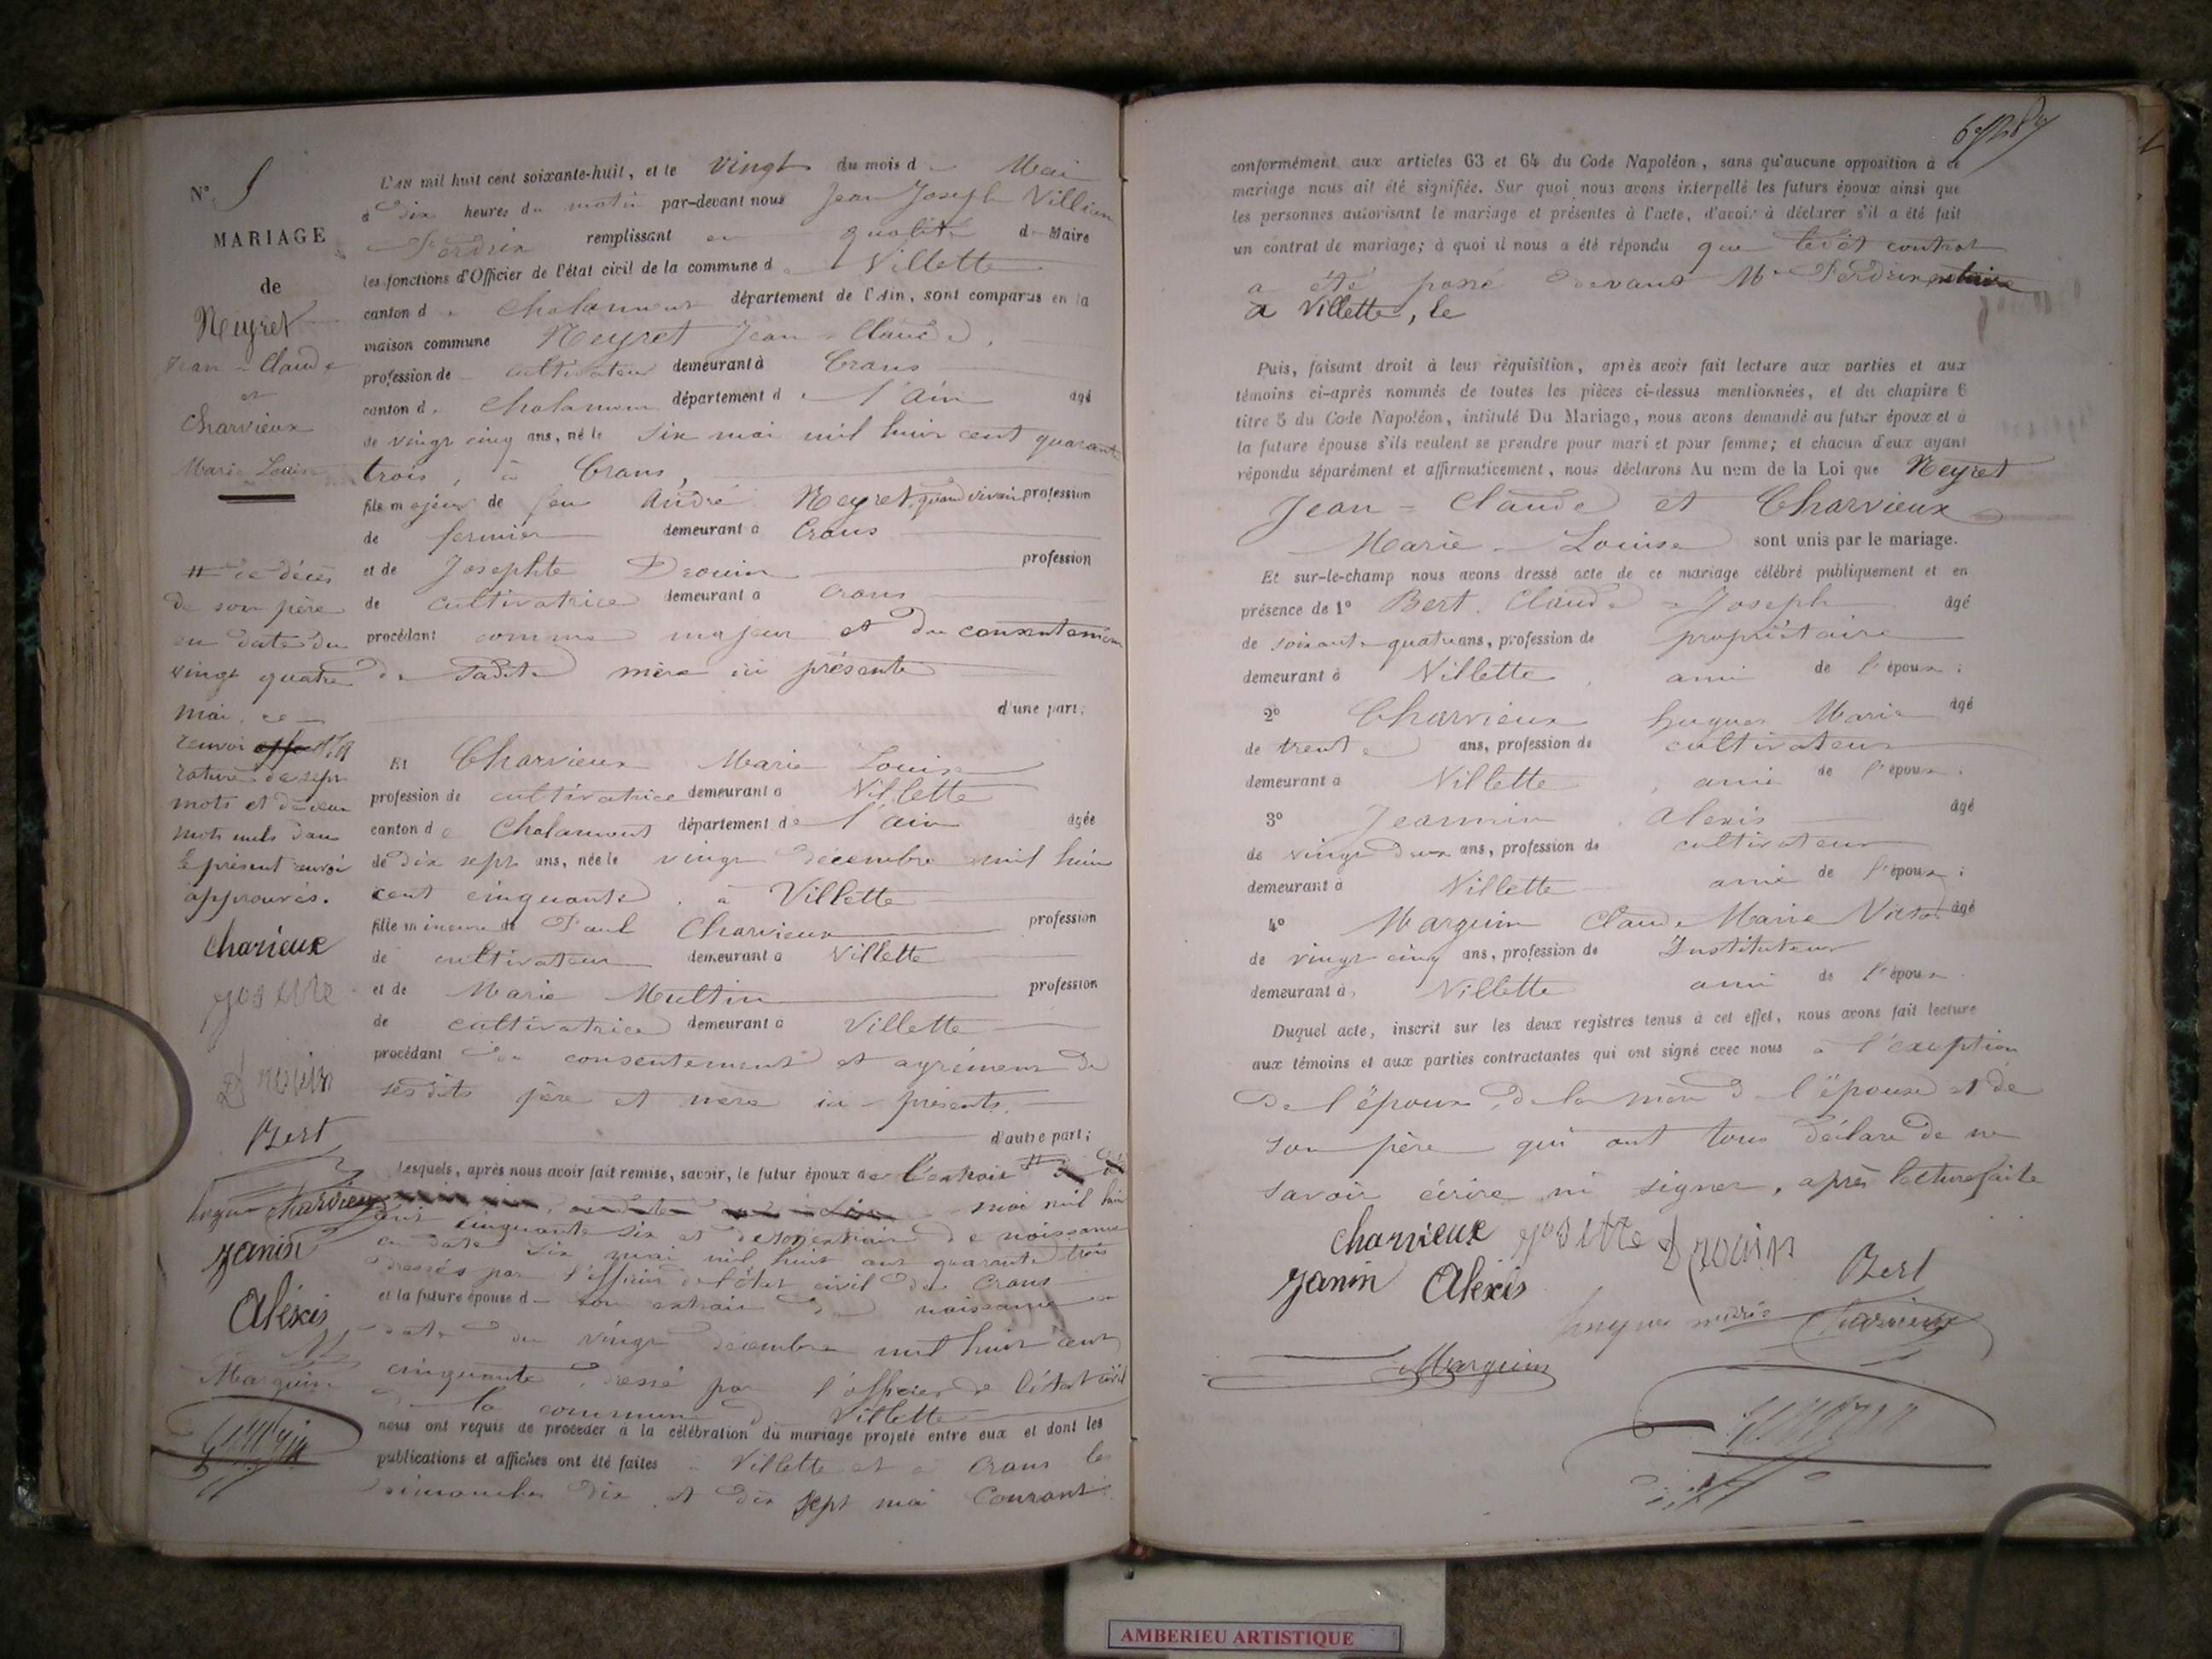 N° 5
MARIAGE
de
Neyret
Jean-Claude
et
Charvieux
Marie Louise
L'an mil huit cent soixante-huit, et le vingt du mois d Mai
à dix heures du matin par-devant nous Jean Joseph
Perdrix remplissant en qualité de Maire
les fonctions d'Officier de l'état civil de la commune d Villette
canton d Chalamont département de l'Ain, sont comparus en la
maison commune Neyret Jean-Claude,
profession de cultivateur demeurant à Crans
canton de Chalamont département de l'Ain âgé
de vingt cinq ans, né le six mai mil huit cent quarante
trois, à Crans,
fils majeur de feu André Neyret, quand vivait profession
de fermier demeurant à Crans
et de Josephte Drouin profession
de cultivatrice demeurant à Crans
procédant comme majeur et du consentement
de sadite mère ici présente
d'une part;
Et Charvieux Marie Louise
profession de cultivatrice demeurant à Villette
canton de Chalamont département de l'Ain âgée
de dix sept ans, née le vingt décembre mil huit
cent cinquante, à Villette
fille mineure de Paul Charvieux profession
de cultivateur demeurant à Villette
et de Marie Multin profession
de cultivatrice demeurant à Villette
procédant du consentement et agrément de
sesdits père et mère ici présents.
d'autre part;
Lesquels, après nous avoir fait remise, savoir, le futur époux de l'extrait #
mai mil huit
cent cinquante six et de son extrait de naissance
en date six mai mil huit cent quarante trois
dressés par l'officier de l'état civil de Crans
et la future épouse d son extrait de naissance en
date du vingt décembre mil huit cent
cinquante, dressé par l'officier de l'état civil
de la commune de Villette
nous ont requis de procéder à la célébration du mariage projeté entre eux et dont les
publications et affiches ont été faites à Villette et à Crans les
dimanches dix et dix sept mai courant
# de décès
de son père
en date du
vingt quatre
mai, ce
renvoi
rature de sept
mots et de deux
mots nuls dans
le présent renvoi
approuvés.
Charieux
josette
Drouin
Bert
hugue Charvieux
Janin
Aléxis
Marguin
conformément aux articles 63 et 64 du Code Napoléon, sans qu'aucune opposition à ce
mariage nous ait été signifiée. Sur quoi nous avons interpellé les futurs époux ainsi que
les personnes autorisant le mariage et présentes à l'acte, d'avoir à déclarer s'il a été fait
un contrat de mariage; à quoi il nous a été répondu que ledit contrat
a été passé devant Me Perdrix notaire
à Villette, le
Puis, faisant droit à leur réquisition, après avoir fait lecture aux parties et aux
témoins ci-après nommés de toutes les pièces ci-dessus mentionnées, et du chapitre 6
titre 5 du Code Napoléon, intitulé Du Mariage, nous avons demandé au futur époux et à
la future épouse s'ils veulent se prendre pour mari et pour femme; et chacun d'eux ayant
répondu séparément et affirmativement, nous déclarons Au nom de la Loi que Neyret
Jean=Claude et Charvieux
Marie-Louise sont unis par le mariage.
Et sur-le-champ nous avons dressé acte de ce mariage célébré publiquement et en
présence de 1° Bert Claude=Joseph âgé
de soixante quatre ans, profession de propriétaire
demeurant à Villette, ami de l'époux;
2° Charvieux hugues Marie âgé
de trente ans, profession de cultivateur
demeurant à Villette, ami de l'époux.
3° Jeannin Alexis âgé
de vingt deux ans, profession de cultivateur
demeurant à Villette ami de l'époux;
4° Marguin Claude Marie Victor âgé
de vingt cinq ans, profession de Instituteur
demeurant à Villette ami de l'époux
Duquel acte, inscrit sur les deux registres tenus à cet effet, nous avons fait lecture
aux témoins et aux parties contractantes qui ont signé avec nous à l'exception
de l'époux, de la mère de l'épouse et de
son père qui ont tous déclaré de ne
savoir écrire ni signer, après lecture faite
Charvieux josette Drouin
Janin Aléxis Bert
hugues marie Charvieux
Marguin
AMBERIEU ARTISTIQUE